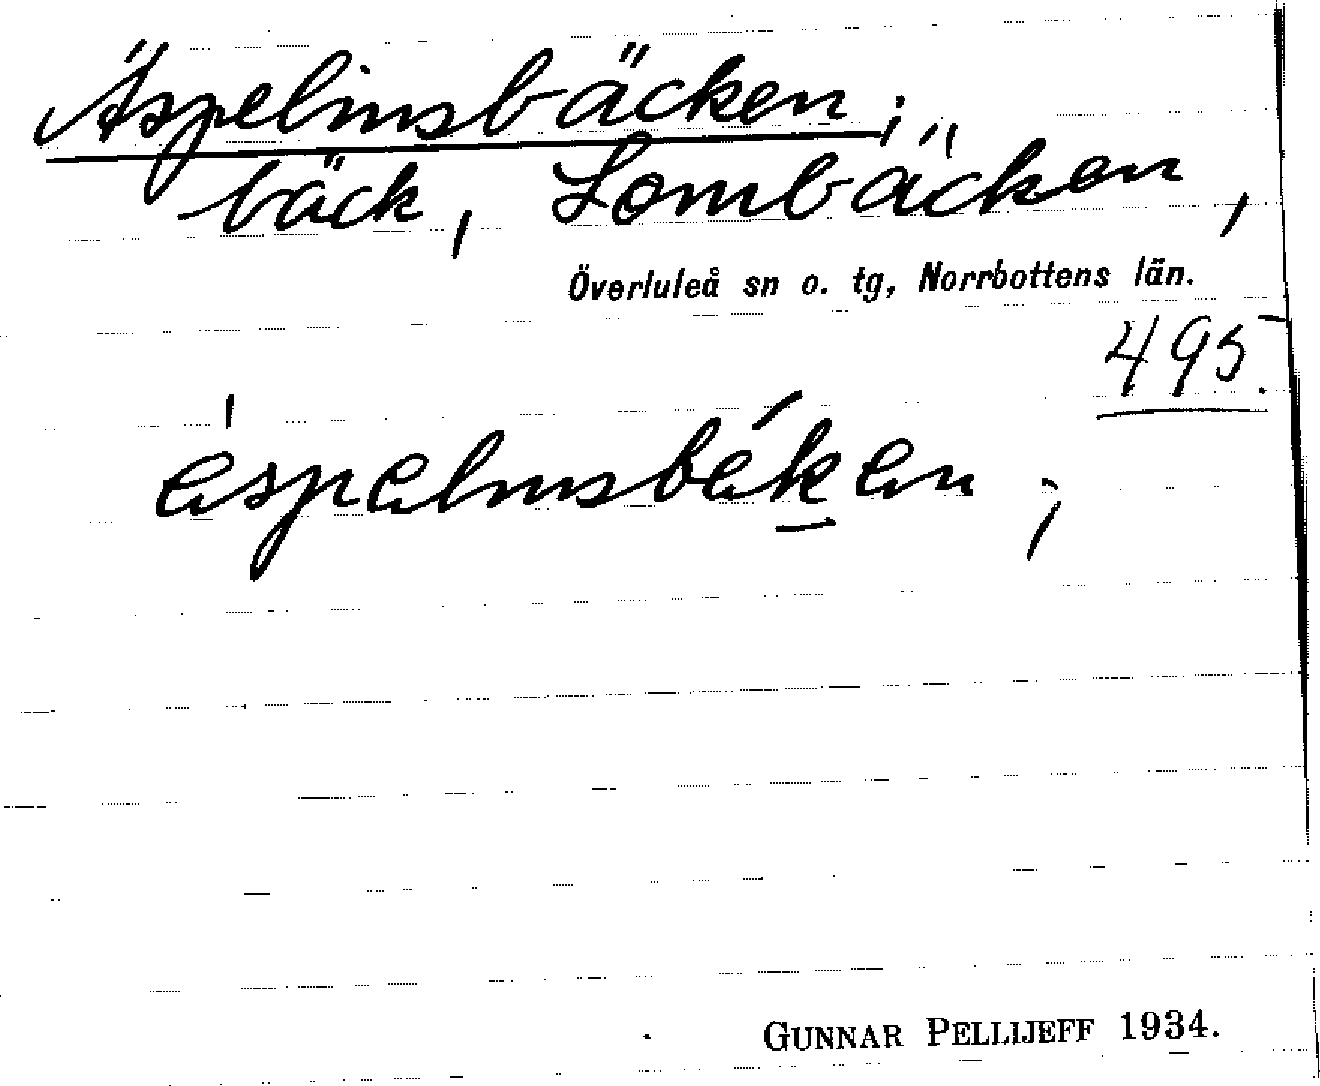 Äspelinsbäcken;
bäck, Lombäcken,
Överluleå sn o. tg, Norrbottens län.
495.
äspelmsbäken;
GUNNAR PELLIJEFF 1934.